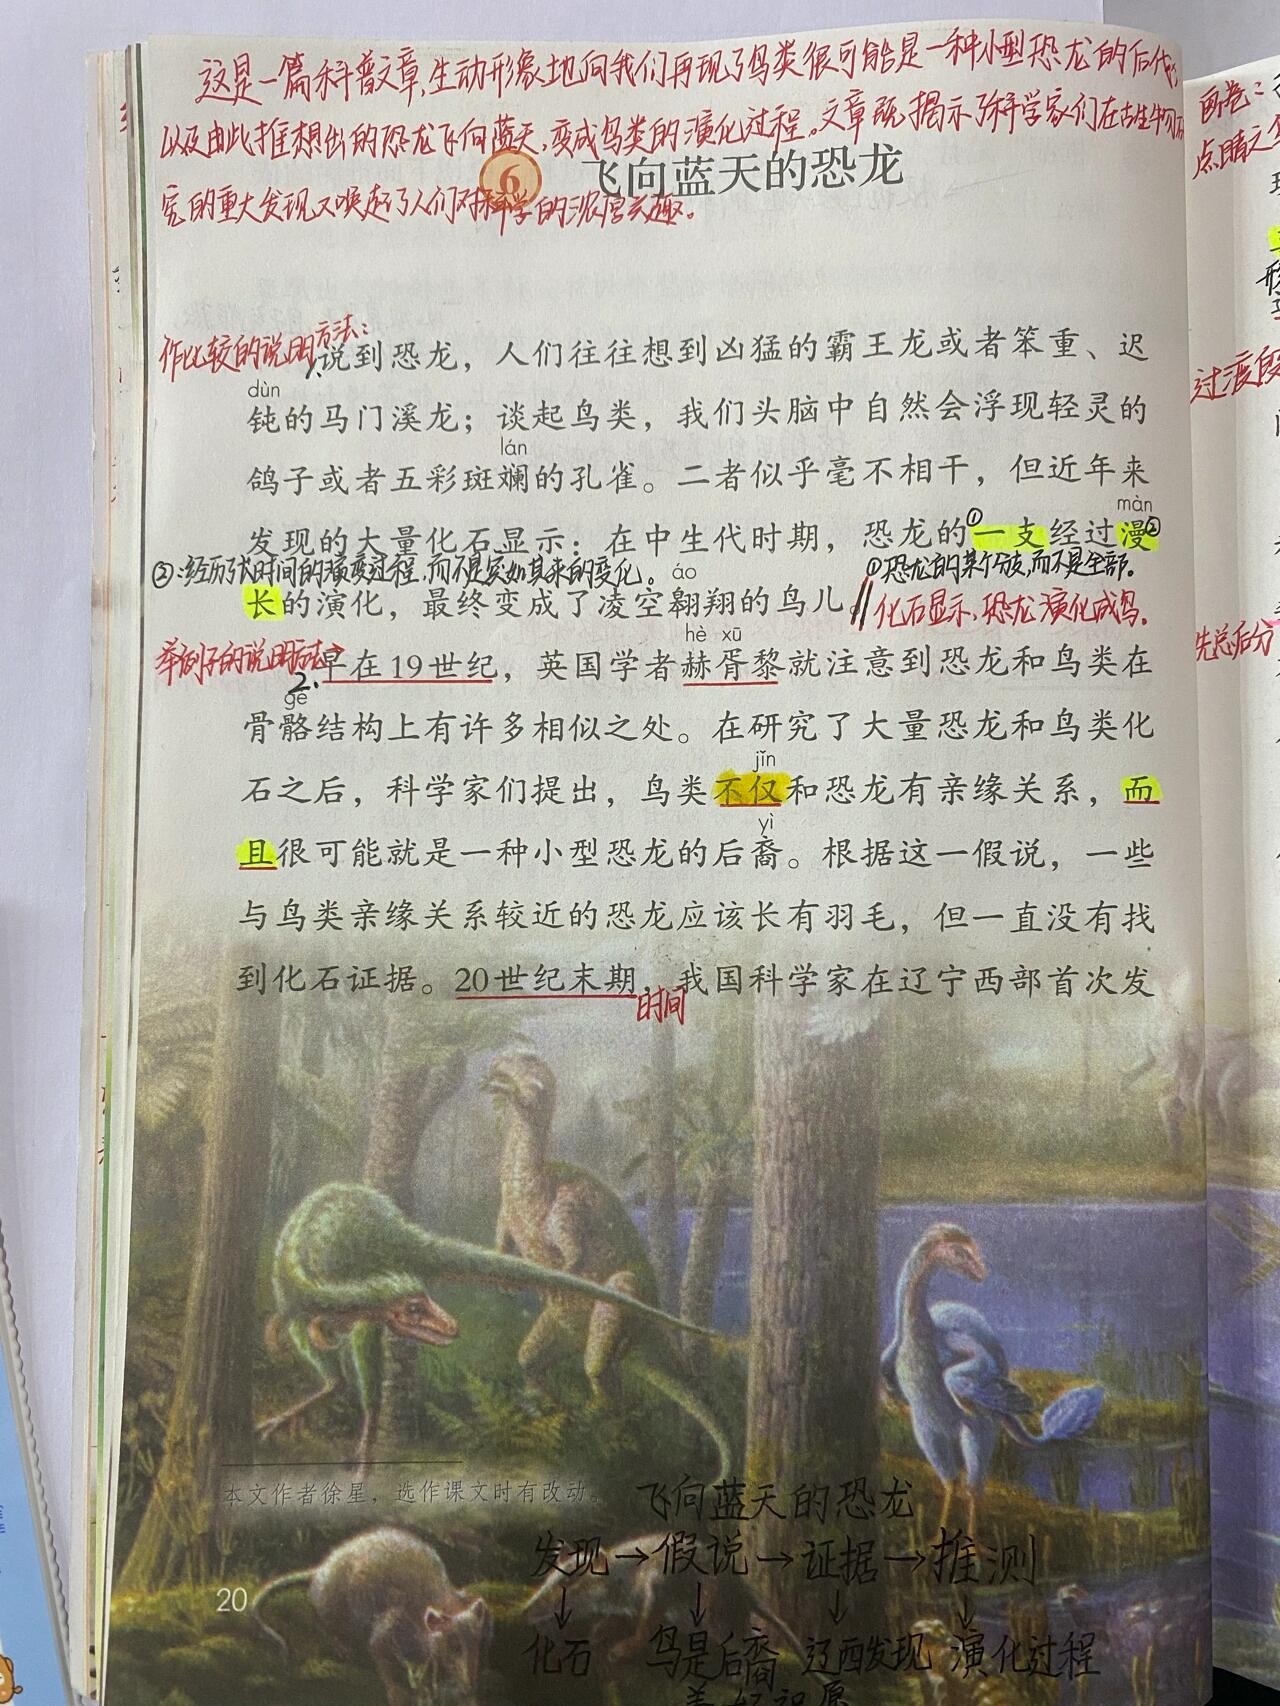 这是一篇科普文章,生动形象地向我们再现了鸟类很可能是一种小型恐龙的后代
以及由此推想出的恐龙飞向蓝天,变成鸟类的演化过程。文章既揭示了科学家们在古生物
究的重大发现又唤起了人们对科学的浓厚兴趣。
6 飞向蓝天的恐龙
作比较的说明方法:
1、说到恐龙,人们往往想到凶猛的霸王龙或者笨重、迟
dùn
钝的马门溪龙;谈起鸟类,我们头脑中自然会浮现轻灵的
lán
鸽子或者五彩斑斓的孔雀。二者似乎毫不相干,但近年来
màn
发现的大量化石显示:在中生代时期,恐龙的①一支经过漫②
②:经历了长时间的演变过程,而不是突如其来的变化。
①恐龙的某个分支,而不是全部。
áo
长的演化,最终变成了凌空翱翔的鸟儿。
化石显示,恐龙演化成鸟。
举例子的说明方法
hè xū
2、早在19世纪,英国学者赫胥黎就注意到恐龙和鸟类在
gé
骨骼结构上有许多相似之处。在研究了大量恐龙和鸟类化
jǐn
石之后,科学家们提出,鸟类不仅和恐龙有亲缘关系,而
yì
且很可能就是一种小型恐龙的后裔。根据这一假说,一些
与鸟类亲缘关系较近的恐龙应该长有羽毛,但一直没有找
到化石证据。20世纪末期,我国科学家在辽宁西部首次发
时间
本文作者徐星,选作课文时有改动。
飞向蓝天的恐龙
发现→假说→证据→推测
↓ ↓ ↓ ↓
化石 鸟是后裔 辽西发现 演化过程
20
画卷:
点睛之
过渡段
先总后分